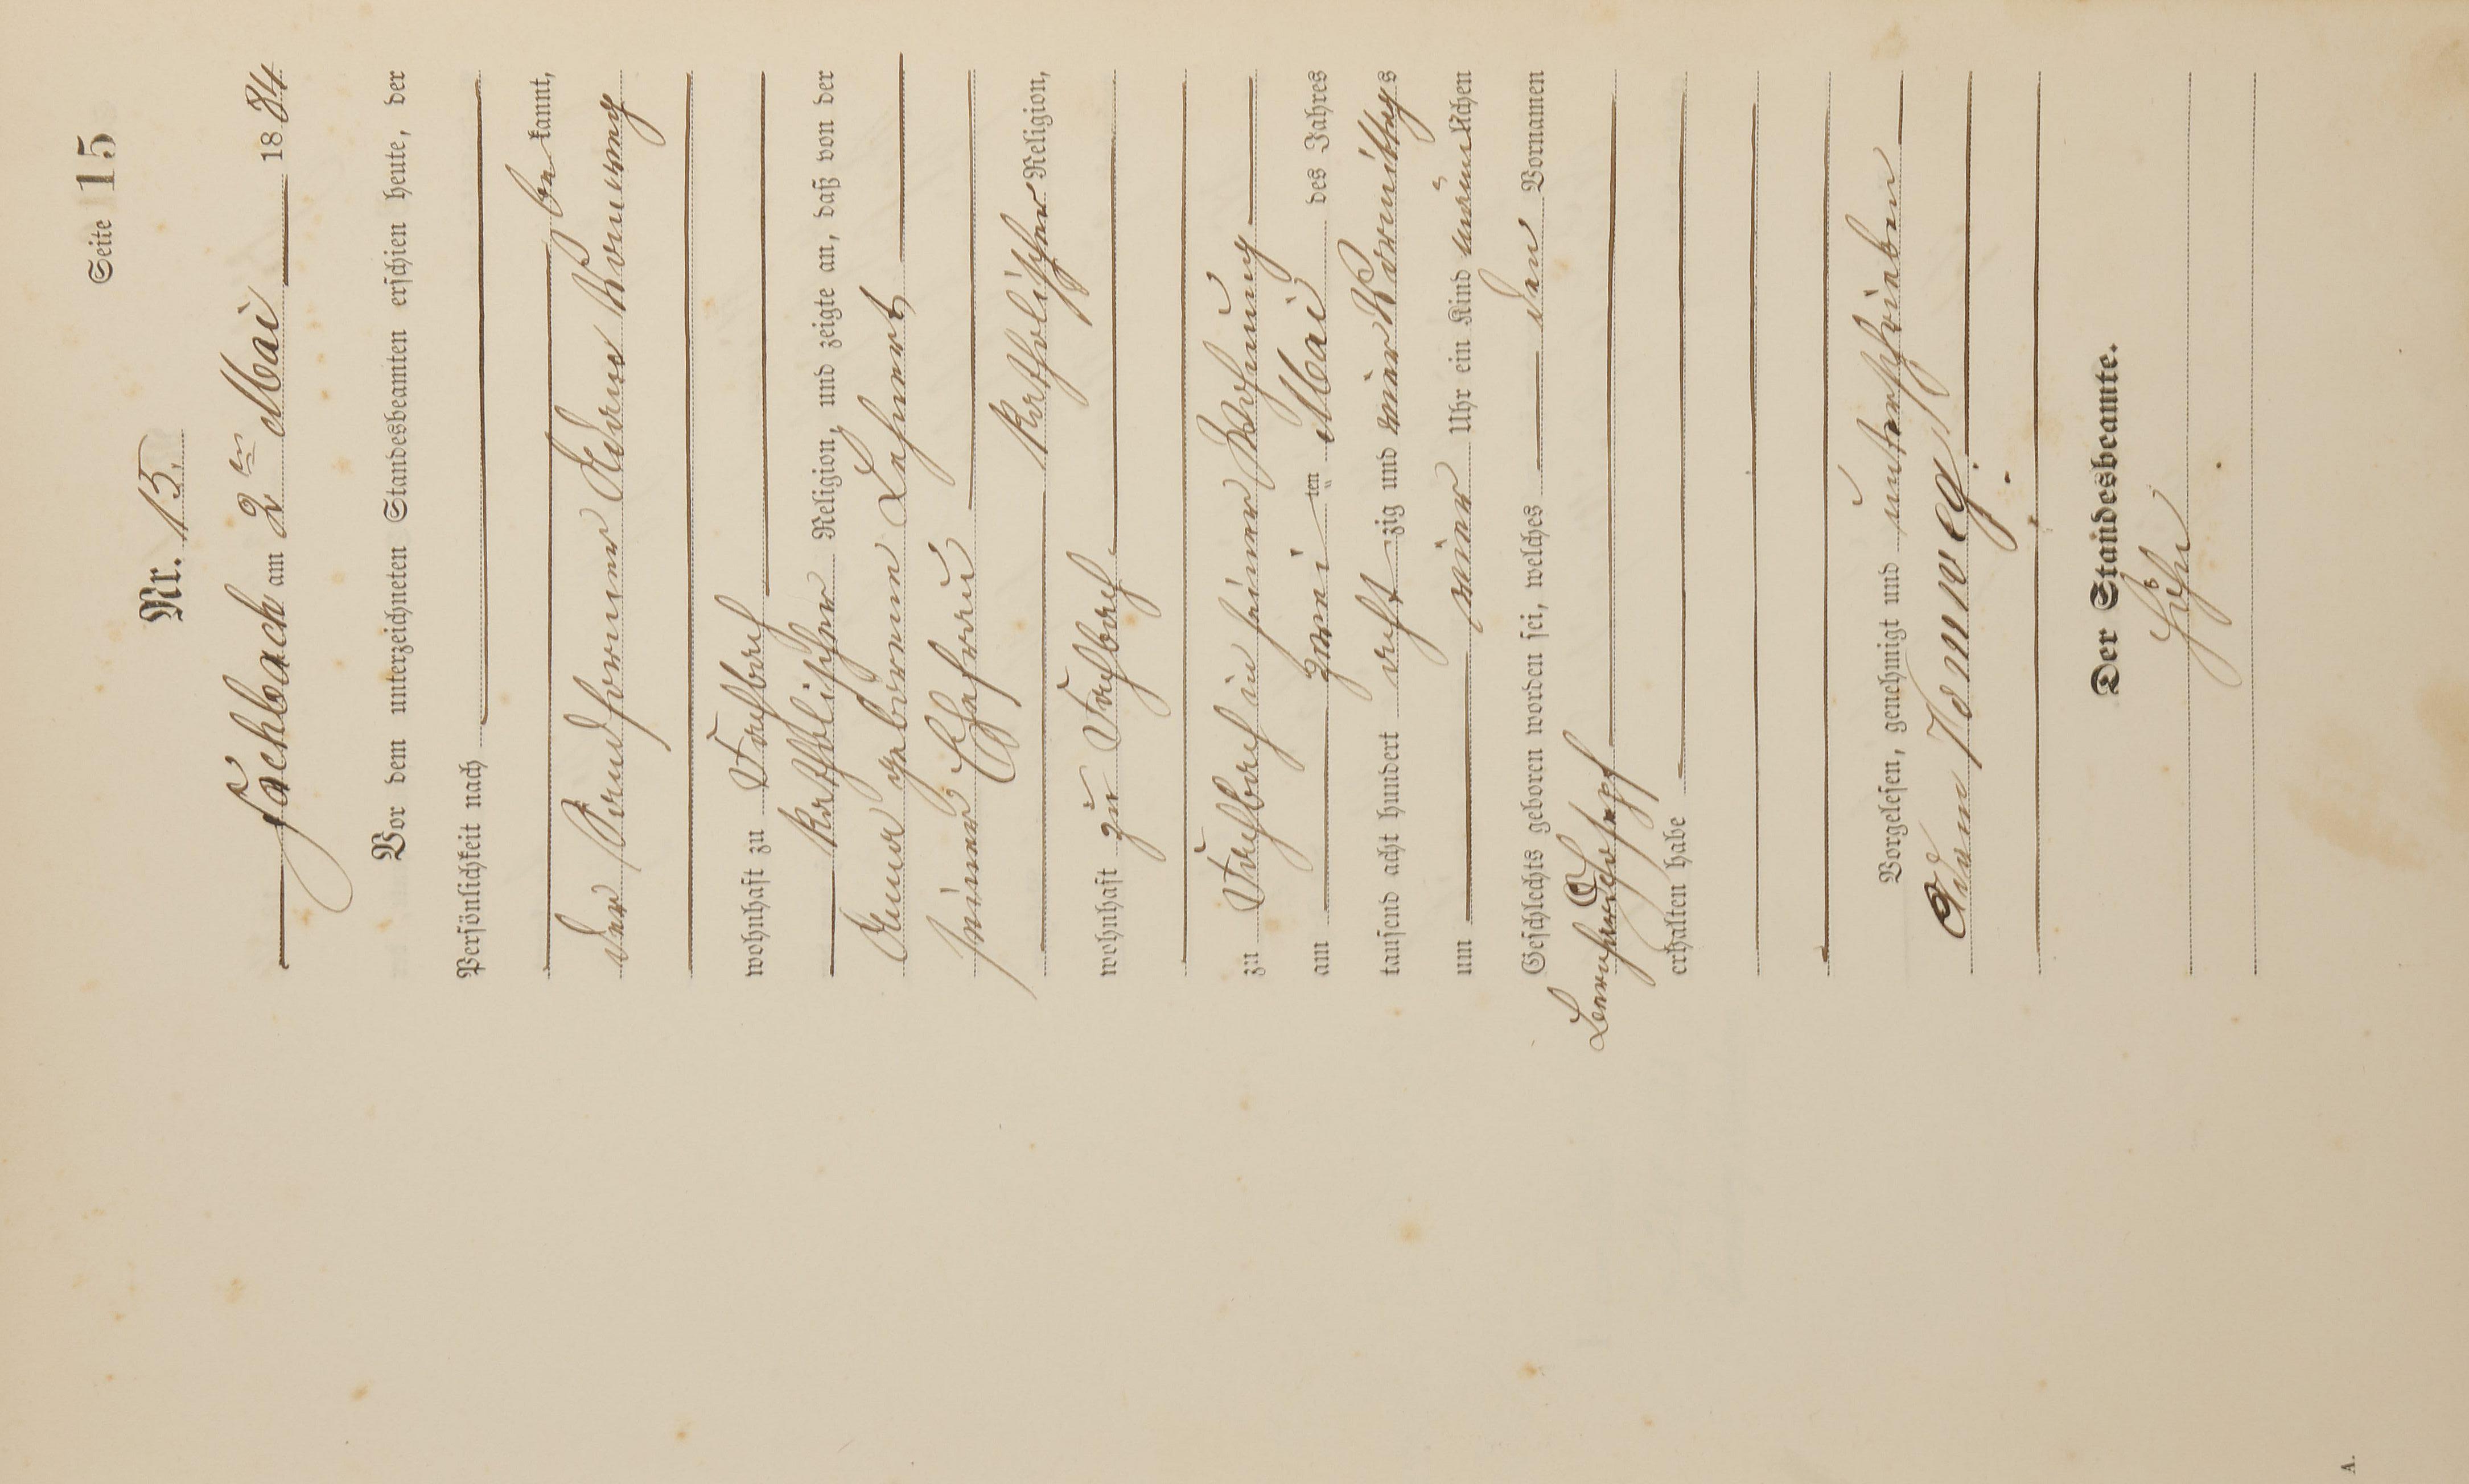 Seite 15
Nr. 13.
Fachbach am 2ten Mai 1884
Vor dem unterzeichneten Standesbeamten erschien heute, der
Persönlichkeit nach
bekannt,
der Sandformer Adam
wohnhaft zu Fachbach
katholischer Religion, und zeigte an, daß von der
Anna geborenen Lehnert
seiner Ehefrau
katholischer Religion,
wohnhaft zu Fachbach
zu Fachbach in seiner Wohnung
am zwei ten Mai des Jahres
tausend acht hundert acht zig und vier Vormittags
um vier Uhr ein Kind männlichen
Geschlechts geboren worden sei, welches den Vornamen
Joseph
erhalten habe
Vorgelesen, genehmigt und unterschrieben
Adam
Der Standesbeamte.
A.